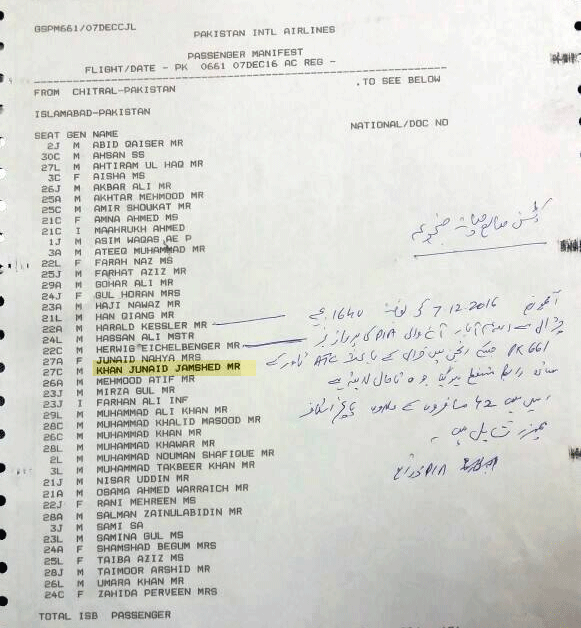 GSPM661/07DECCJL
PAKISTAN INTL AIRLINES
PASSENGER MANIFEST
FLIGHT/DATE - PK 0661 07DEC16 AC REG -
FROM CHITRAL-PAKISTAN .TO SEE BELOW
ISLAMABAD-PAKISTAN
NATIONAL/DOC NO
SEAT GEN NAME
2J M ABID QAISER MR
30C M AHSAN SS
27L M AHTIRAM UL HAQ MR
3C F AISHA MS
26J M AKBAR ALI MR
25A M AKHTAR MEHMOOD MR
25C M AMIR SHOUKAT MR
21C F AMNA AHMED MS
21C I MAAHRUKH AHMED
1J M ASIM WAQAS AE P
3A M ATEEQ MUHAMMAD MR
22L F FARAH NAZ MS
25J M FARHAT AZIZ MR
29A M GOHAR ALI MR
24J F GUL HORAN MRS
23A M HAJI NAWAZ MR
21L M HAN QIANG MR
22A M HARALD KESSLER MR
24L M HASSAN ALI MSTR
22C M HERWIG EICHELBENGER MR
27A F JUNAID NAHYA MRS
27C M KHAN JUNAID JAMSHED MR
26A M MEHMOOD ATIF MR
23J M MIRZA GUL MR
23J I FARHAN ALI INF
29L M MUHAMMAD ALI KHAN MR
28C M MUHAMMAD KHALID MASOOD MR
26C M MUHAMMAD KHAN MR
28L M MUHAMMAD KHAWAR MR
2L M MUHAMMAD NOUMAN SHAFIQUE MR
3L M MUHAMMAD TAKBEER KHAN MR
21J M NISAR UDDIN MR
21A M OSAMA AHMED WARRAICH MR
22J F RANI MEHREEN MS
28A M SALMAN ZAINULABIDIN MR
3J M SAMI SA
23L M SAMINA GUL MS
24A F SHAMSHAD BEGUM MRS
25L F TAIBA AZIZ MS
28J M TAIMOOR ARSHID MR
26L M UMARA KHAN MR
24C F ZAHIDA PERVEEN MRS
TOTAL ISB PASSENGER
7-12-2016 کو 1640
چترال سے اسلام آباد آنے والی PIA کی پرواز نمبر
PK 661 ATC
رابطہ منقطع ہو گیا
اس میں 42 مسافروں کے علاوہ پانچ
PIA